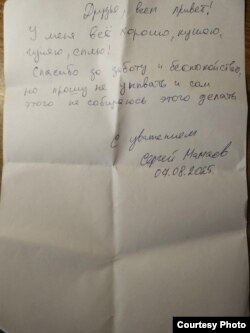 Друзья, всем привет!
У меня всё хорошо, кушаю,
гуляю, сплю!
Спасибо за заботу и беспокойство,
но прошу не унывать и сам
этого не собираюсь этого делать
С уважением
Сергей
07.08.2025.
Courtesy Photo